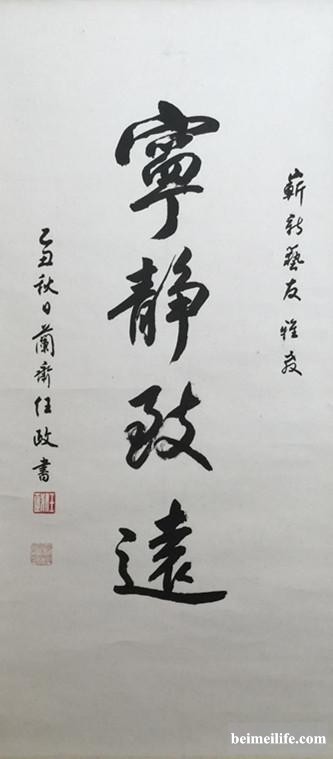 嶄新藝友雅教
寧静致遠
乙丑秋日蘭齋任政書
beimeilife.com